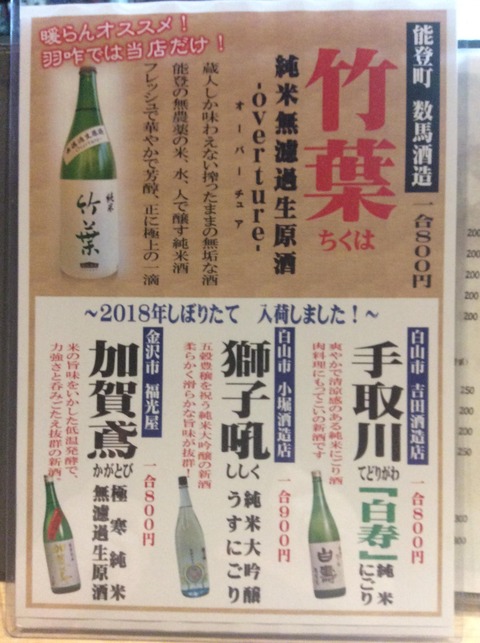 暖らんオススメ！
羽咋では当店だけ！
能登町　数馬酒造
一合800円
竹葉
ちくは
純米無濾過生原酒
-overture-
オーバーチュア
蔵人しか味わえない搾ったままの無垢な酒
能登の無農薬の米、水、人で醸す純米酒
フレッシュで華やかで芳醇、正に極上の一滴
純米
竹葉
～2018年しぼりたて　入荷しました！～
白山市　吉田酒造店
一合800円
手取川
てどりがわ
『白寿』純米にごり
爽やかで清涼感のある純米にごり酒
肉料理にもってこいの新酒です
白山市　小堀酒造店
一合900円
獅子吼
ししく
純米大吟醸
うすにごり
五穀豊穣を祝う純米大吟醸の新酒
柔らかく滑らかな旨味が抜群！
金沢市　福光屋
一合800円
加賀鳶
かがとび
極寒純米
無濾過生原酒
米の旨味をいかした低温発酵で、
力強さと呑みごたえ抜群の新酒。